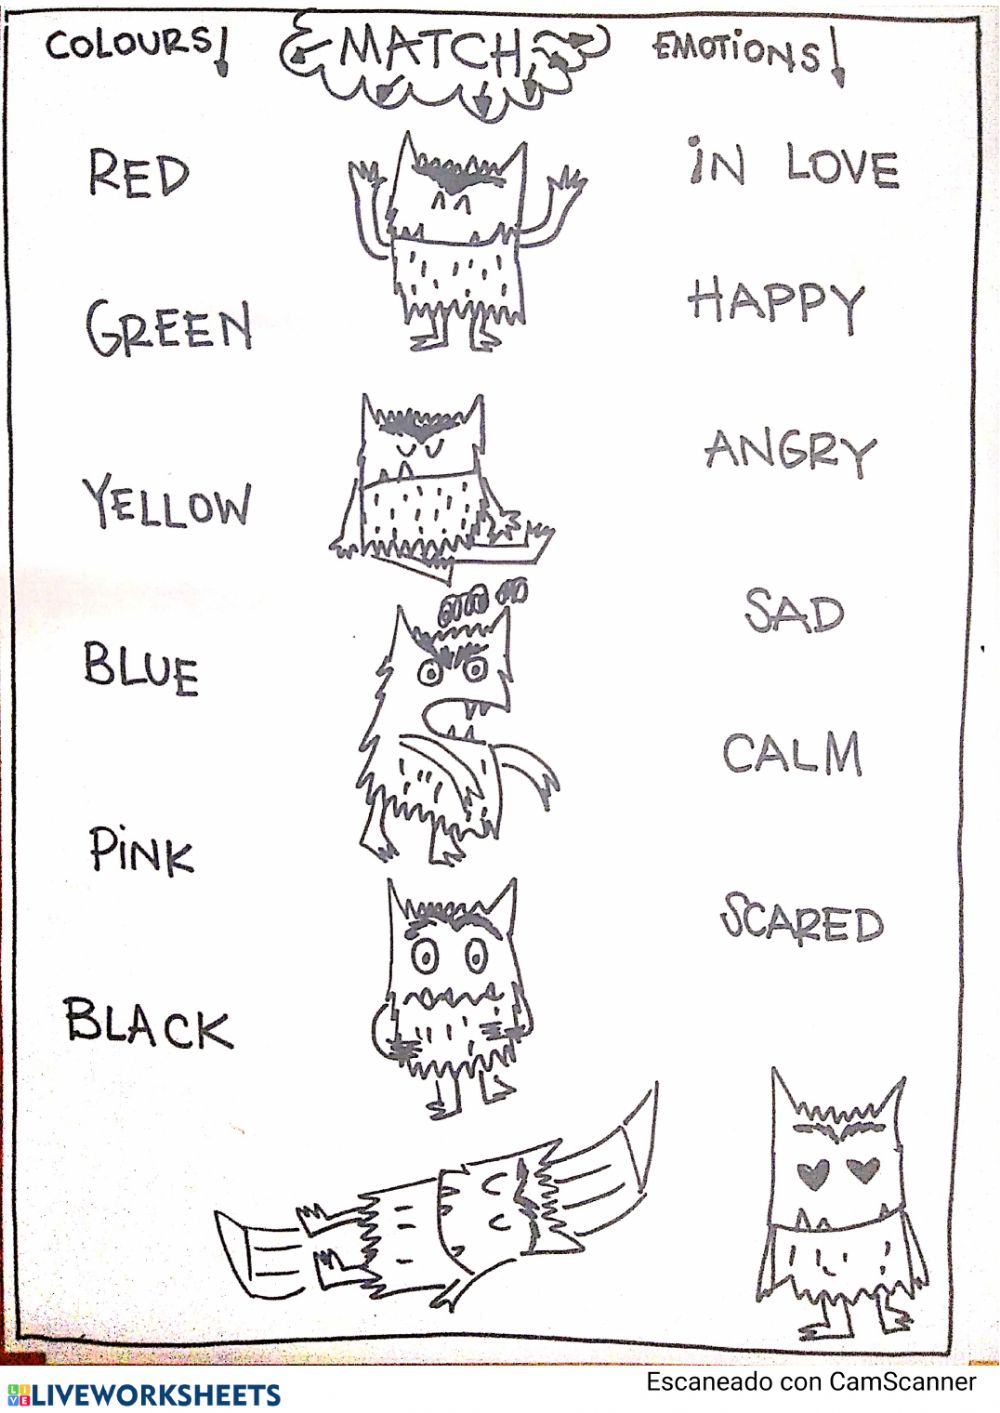 COLOURS! MATCH EMOTIONS!
RED IN LOVE
GREEN HAPPY
YELLOW ANGRY
BLUE SAD
PINK CALM
BLACK SCARED
Escaneado con CamScanner
LIVE LIVEWORKSHEETS